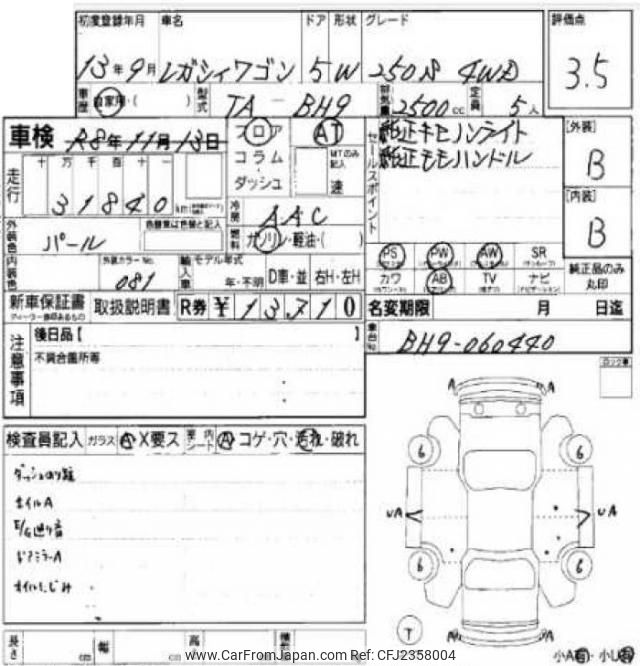 初度登録年月 車名 ドア 形状 グレード 評価点
13年9月 レガシィワゴン 5 W 250S 4WD 3.5
車歴 自家用・( ) 型式 TA-BH9 排気量 2500cc 定員 5人
車検 R8年11月13日 フロア AT セールスポイント 純正キセノンライト [外装]
コラム MTのみ記入 純正モモハンドル B
走行 十 万 千 百 十 一 ダッシュ 速
31840 km 冷房 AAC [内装]
外装色 パール 色替車は色替と記入 燃料 ガソリン・軽油・( ) B
内装色 外装カラーNo. 081 輸入車 モデル年式 年・不明 D車・並 右H・左H
PS PW AW SR 純正品のみ丸印
カワ AB TV ナビ
新車保証書 取扱説明書 R券 ¥13710 名変期限 月 日迄
ディーラー捺印あるもの
後日品【 】 車台No. BH9-060440
注意事項 不具合箇所等
検査員記入 ガラス A・X要ス 内 シート A・コゲ・穴・汚れ・破れ
ホイルA
ドアミラーA
オイルにじみ
A A
6 6
UA UA
6 6
T
A A
長さ cm 幅 cm 高
小A
www.CarFromJapan.com Ref: CFJ2358004